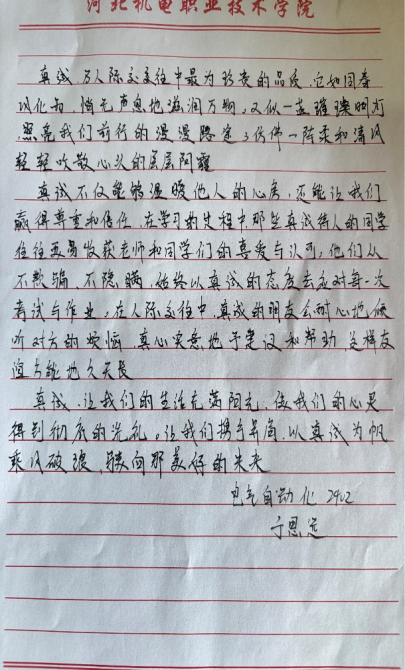 河北机电职业技术学院
真诚乃人际交往中最为珍贵的品质,它如同春
风化雨,悄无声息地滋润万物,又似一盏璀璨明灯
照亮我们前行的漫漫路途;仿佛一阵柔和清风
轻轻吹散心头的层层阴霾
真诚不仅能够温暖他人的心房,还能让我们
赢得尊重和信任,在学习的过程中,那些真诚待人的同学
往往更易收获老师和同学们的喜爱与认可,他们从
不欺骗、不隐瞒,始终以真诚的态度去应对每一次
考试与作业,在人际交往中,真诚的朋友会耐心地倾
听对方的烦恼,真心实意地予建议和帮助,这样友
谊方能地久天长
真诚,让我们的生活充满阳光,使我们的心灵
得到彻底的洗礼,让我们携手并肩,以真诚为帆
乘风破浪,驶向那美好的未来
电气自动化 2402
于恩远